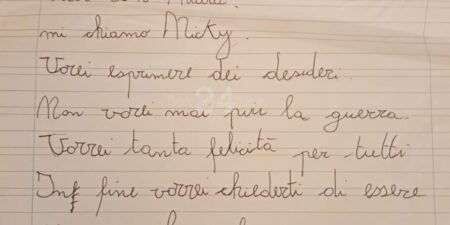 mi chiamo Micky.
Vorei esprimere dei desideri.
Non vorei mai più la guerra.
Vorrei tanta felicità per tutti
Inf fine vorrei chiederti di essere